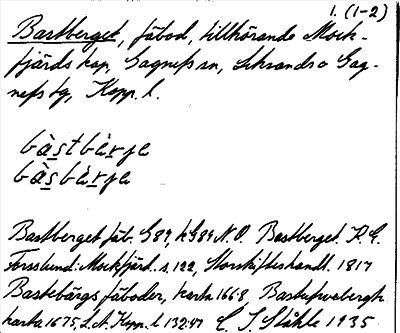 1. (1-2)
Bastberget, fäbod, tillhörande Mock-
fjärds kap, Gagnefs sn, Leksands o Gag-
nefs tg, Kopp. l.
bàstbèrje
bàsbèrje
Bastberget fäb. G89, k G89 N.O. Bastberget K.E.
Forsslund: Mockfjärd. s. 122, Storskifteshandl. 1817
Bastebärgs fäboder, karta 1668, 
karta 1675, L.A. Kopp. l. 132:47 C. I. Ståhle 1935